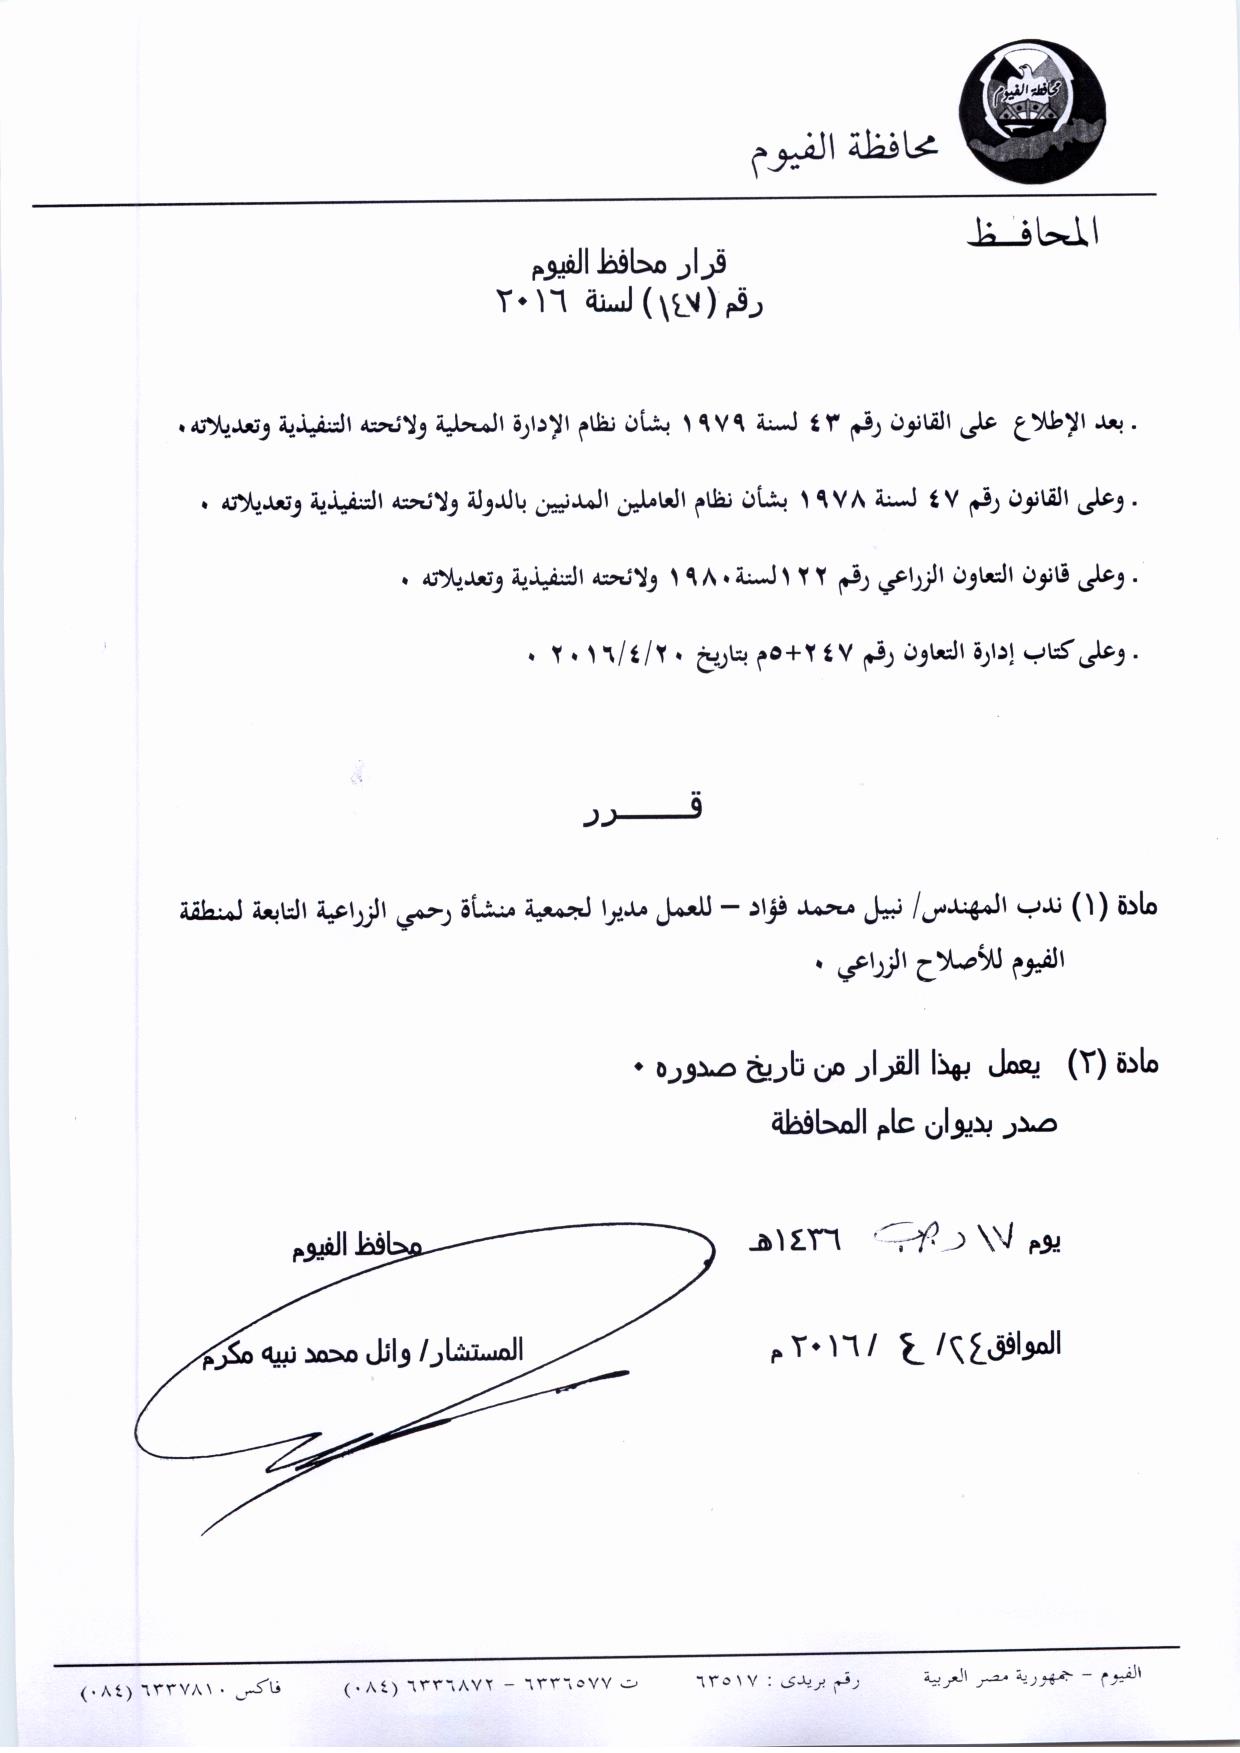 محافظة الفيوم
محافظة الفيوم
المحافـظ
قرار محافظ الفيوم
رقم (١٤٧) لسنة ٢٠١٦
. بعد الإطلاع على القانون رقم ٤٣ لسنة ١٩٧٩ بشأن نظام الإدارة المحلية ولائحته التنفيذية وتعديلاته٠
. وعلى القانون رقم ٤٧ لسنة ١٩٧٨ بشأن نظام العاملين المدنيين بالدولة ولائحته التنفيذية وتعديلاته ٠
. وعلى قانون التعاون الزراعي رقم ١٢٢لسنة١٩٨٠ ولائحته التنفيذية وتعديلاته ٠
. وعلى كتاب إدارة التعاون رقم ٢٤٧+٥م بتاريخ ٢٠١٦/٤/٢٠ ٠
قـــــرر
مادة (١) ندب المهندس/ نبيل محمد فؤاد – للعمل مديرا لجمعية منشأة رحمي الزراعية التابعة لمنطقة
الفيوم للأصلاح الزراعي ٠
مادة (٢) يعمل بهذا القرار من تاريخ صدوره ٠
صدر بديوان عام المحافظة
يوم ١٧ رجب ١٤٣٦هـ
محافظ الفيوم
الموافق٢٤/ ٤ / ٢٠١٦ م
المستشار/ وائل محمد نبيه مكرم
الفيوم – جمهورية مصر العربية رقم بريدى : ٦٣٥١٧ ت ٦٣٣٦٥٧٧ – ٦٣٣٦٨٧٢ (٠٨٤) فاكس ٦٣٣٧٨١٠ (٠٨٤)